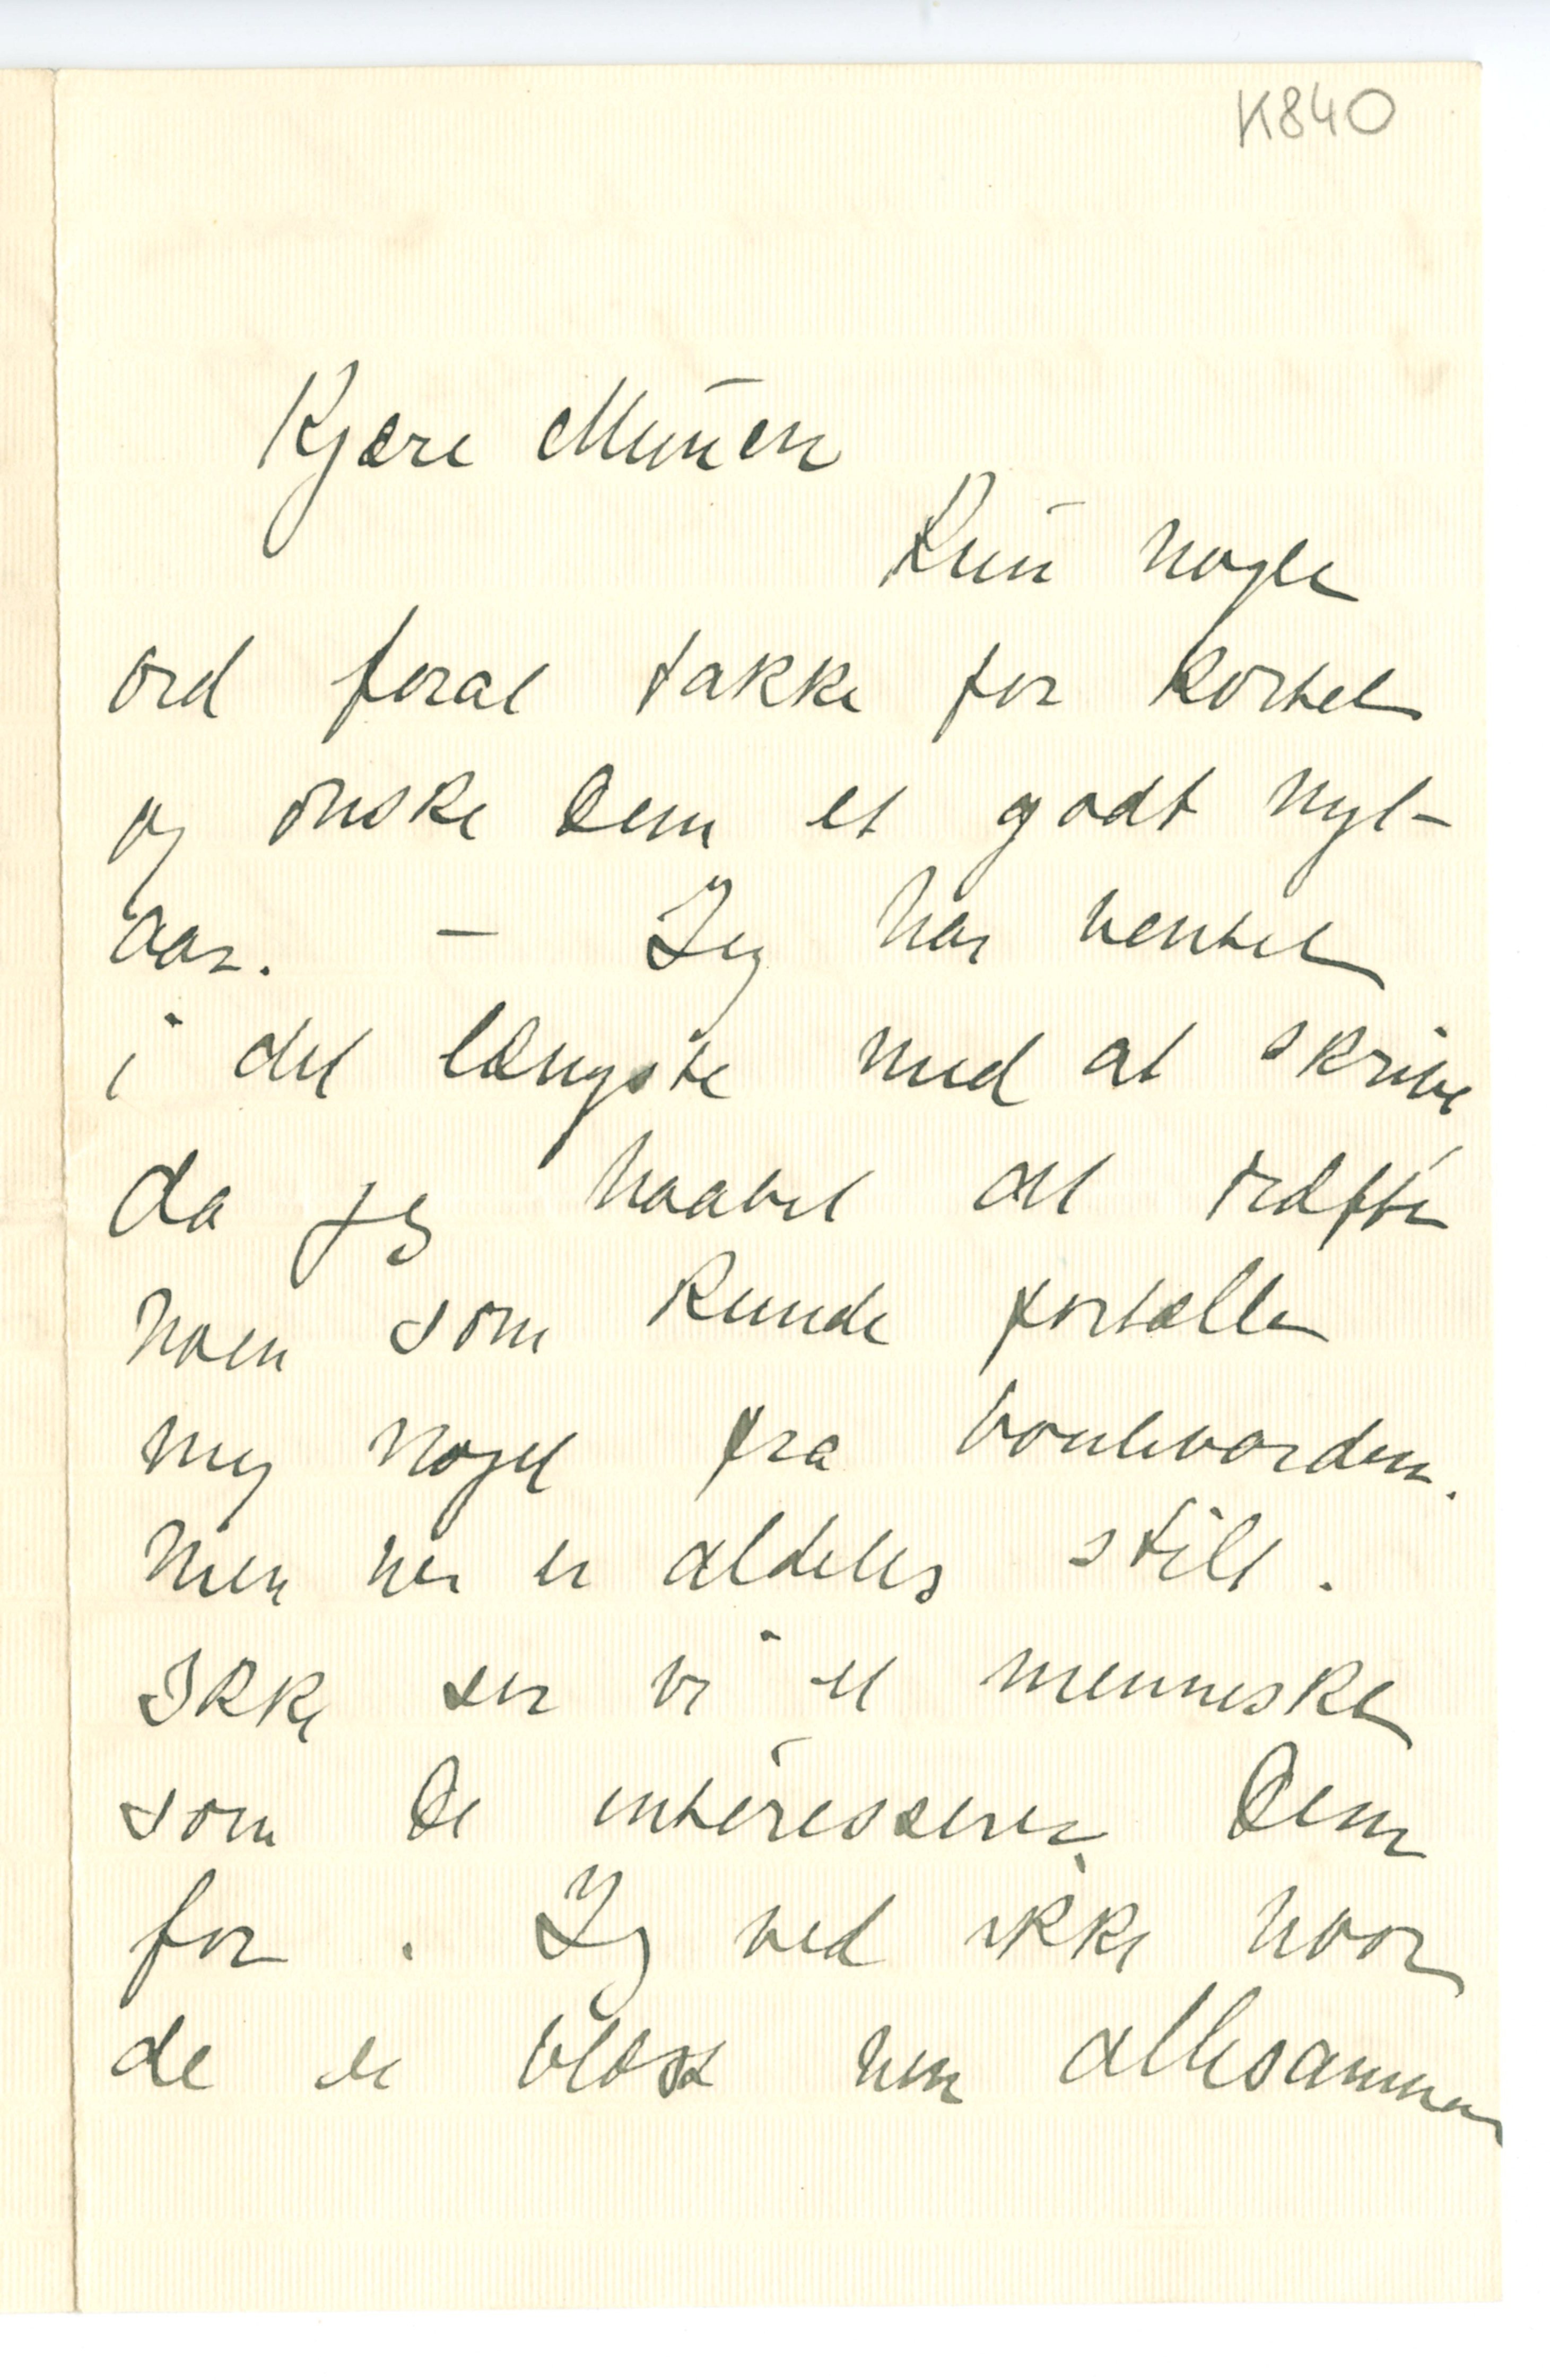 K840
Kjære Munch
Kun nogle
ord forat takke for kortet
og ønske Dem et godt nyt-
aar. – Jeg har ventet
i det længste med at skrive
da jeg haabet at træffe
noen som kunde fortælle
mig noget fra boulevarden.
Men her er aldeles stilt.
Ikke ser vi et menneske
som De interesserer Dem
for. Jeg ved ikke hvor
de er blæst hen allesammen